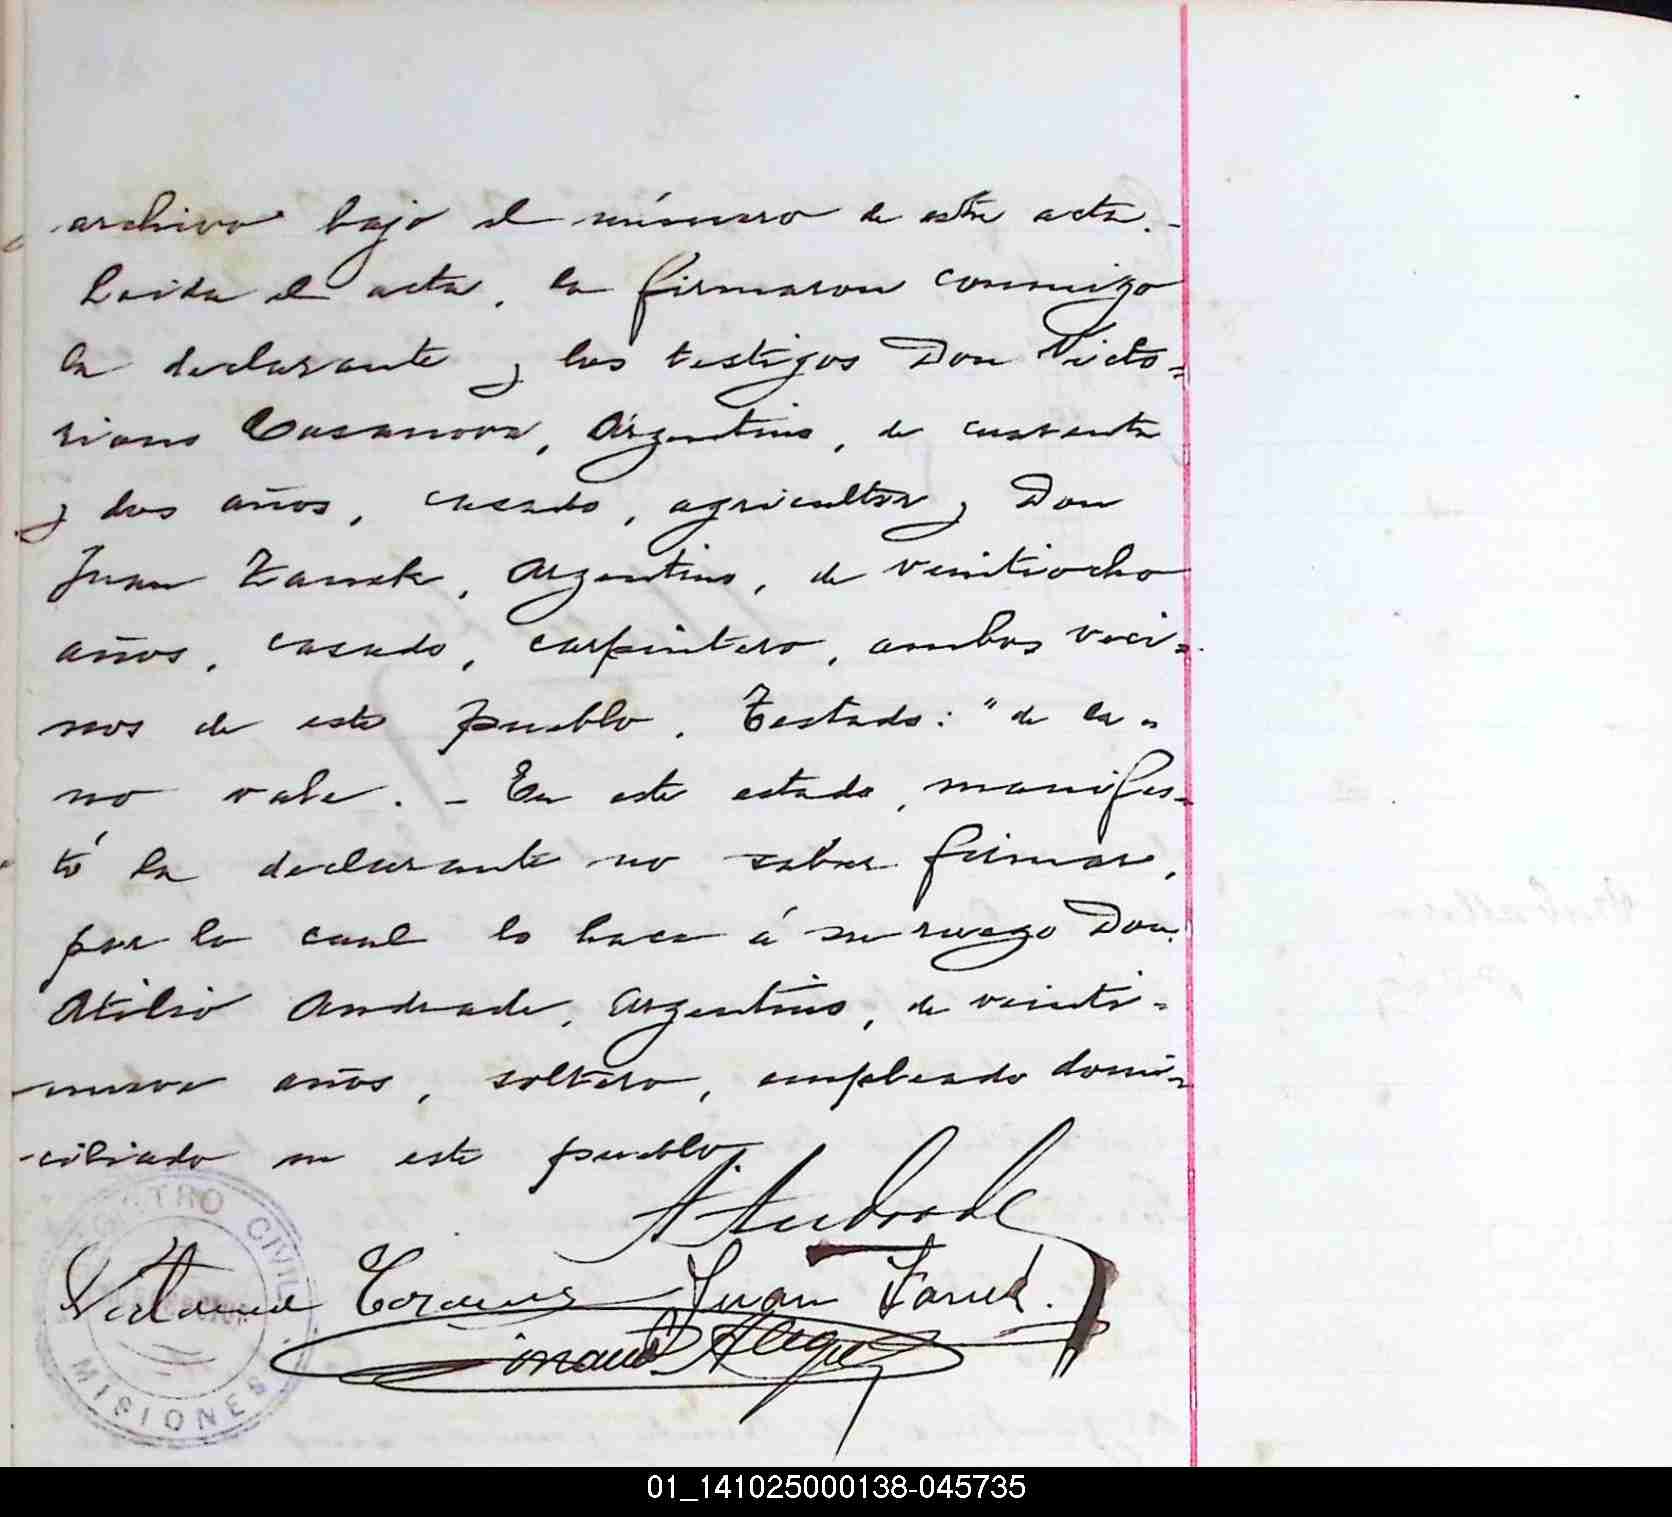 archivo bajo el número de esta acta.-
Leida el acta, la firmaron conmigo
la declarante y los testigos Don Victo=
riano Casanova, Argentino, de cuarenta
y dos años, casado, agricultor y Don
Juan Zanek, Argentino, de veintiocho
años, casado, carpintero, ambos veci=
nos de este pueblo. Testado: "de la"
no vale. - En este estado, manifes-
tó la declarante no saber firmar,
por lo cual lo hace á su ruego Don
Atilio Andrade, Argentino, de veinti=
nueve años, soltero, empleado domi=
ciliado en este pueblo.
A Andrade
Juan
REGISTRO CIVIL
MISIONES
01_141025000138-045735